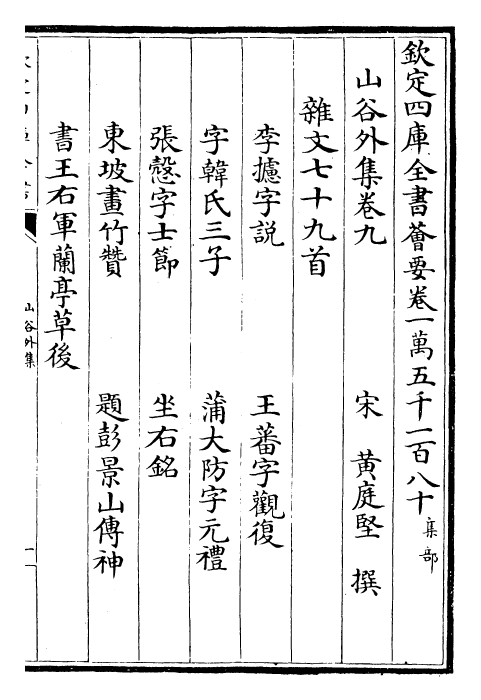 欽定四庫全書薈要卷一萬五千一百八十 集部
山谷外集卷九 宋 黃庭堅 撰
雜文七十九首
李攄字説 王蕃字觀復
字韓氏三子 蒲大防字元禮
張愨字士節 坐右銘
東坡畫竹贊 題彭景山傳神
書王右軍蘭亭草後
山谷外集
一